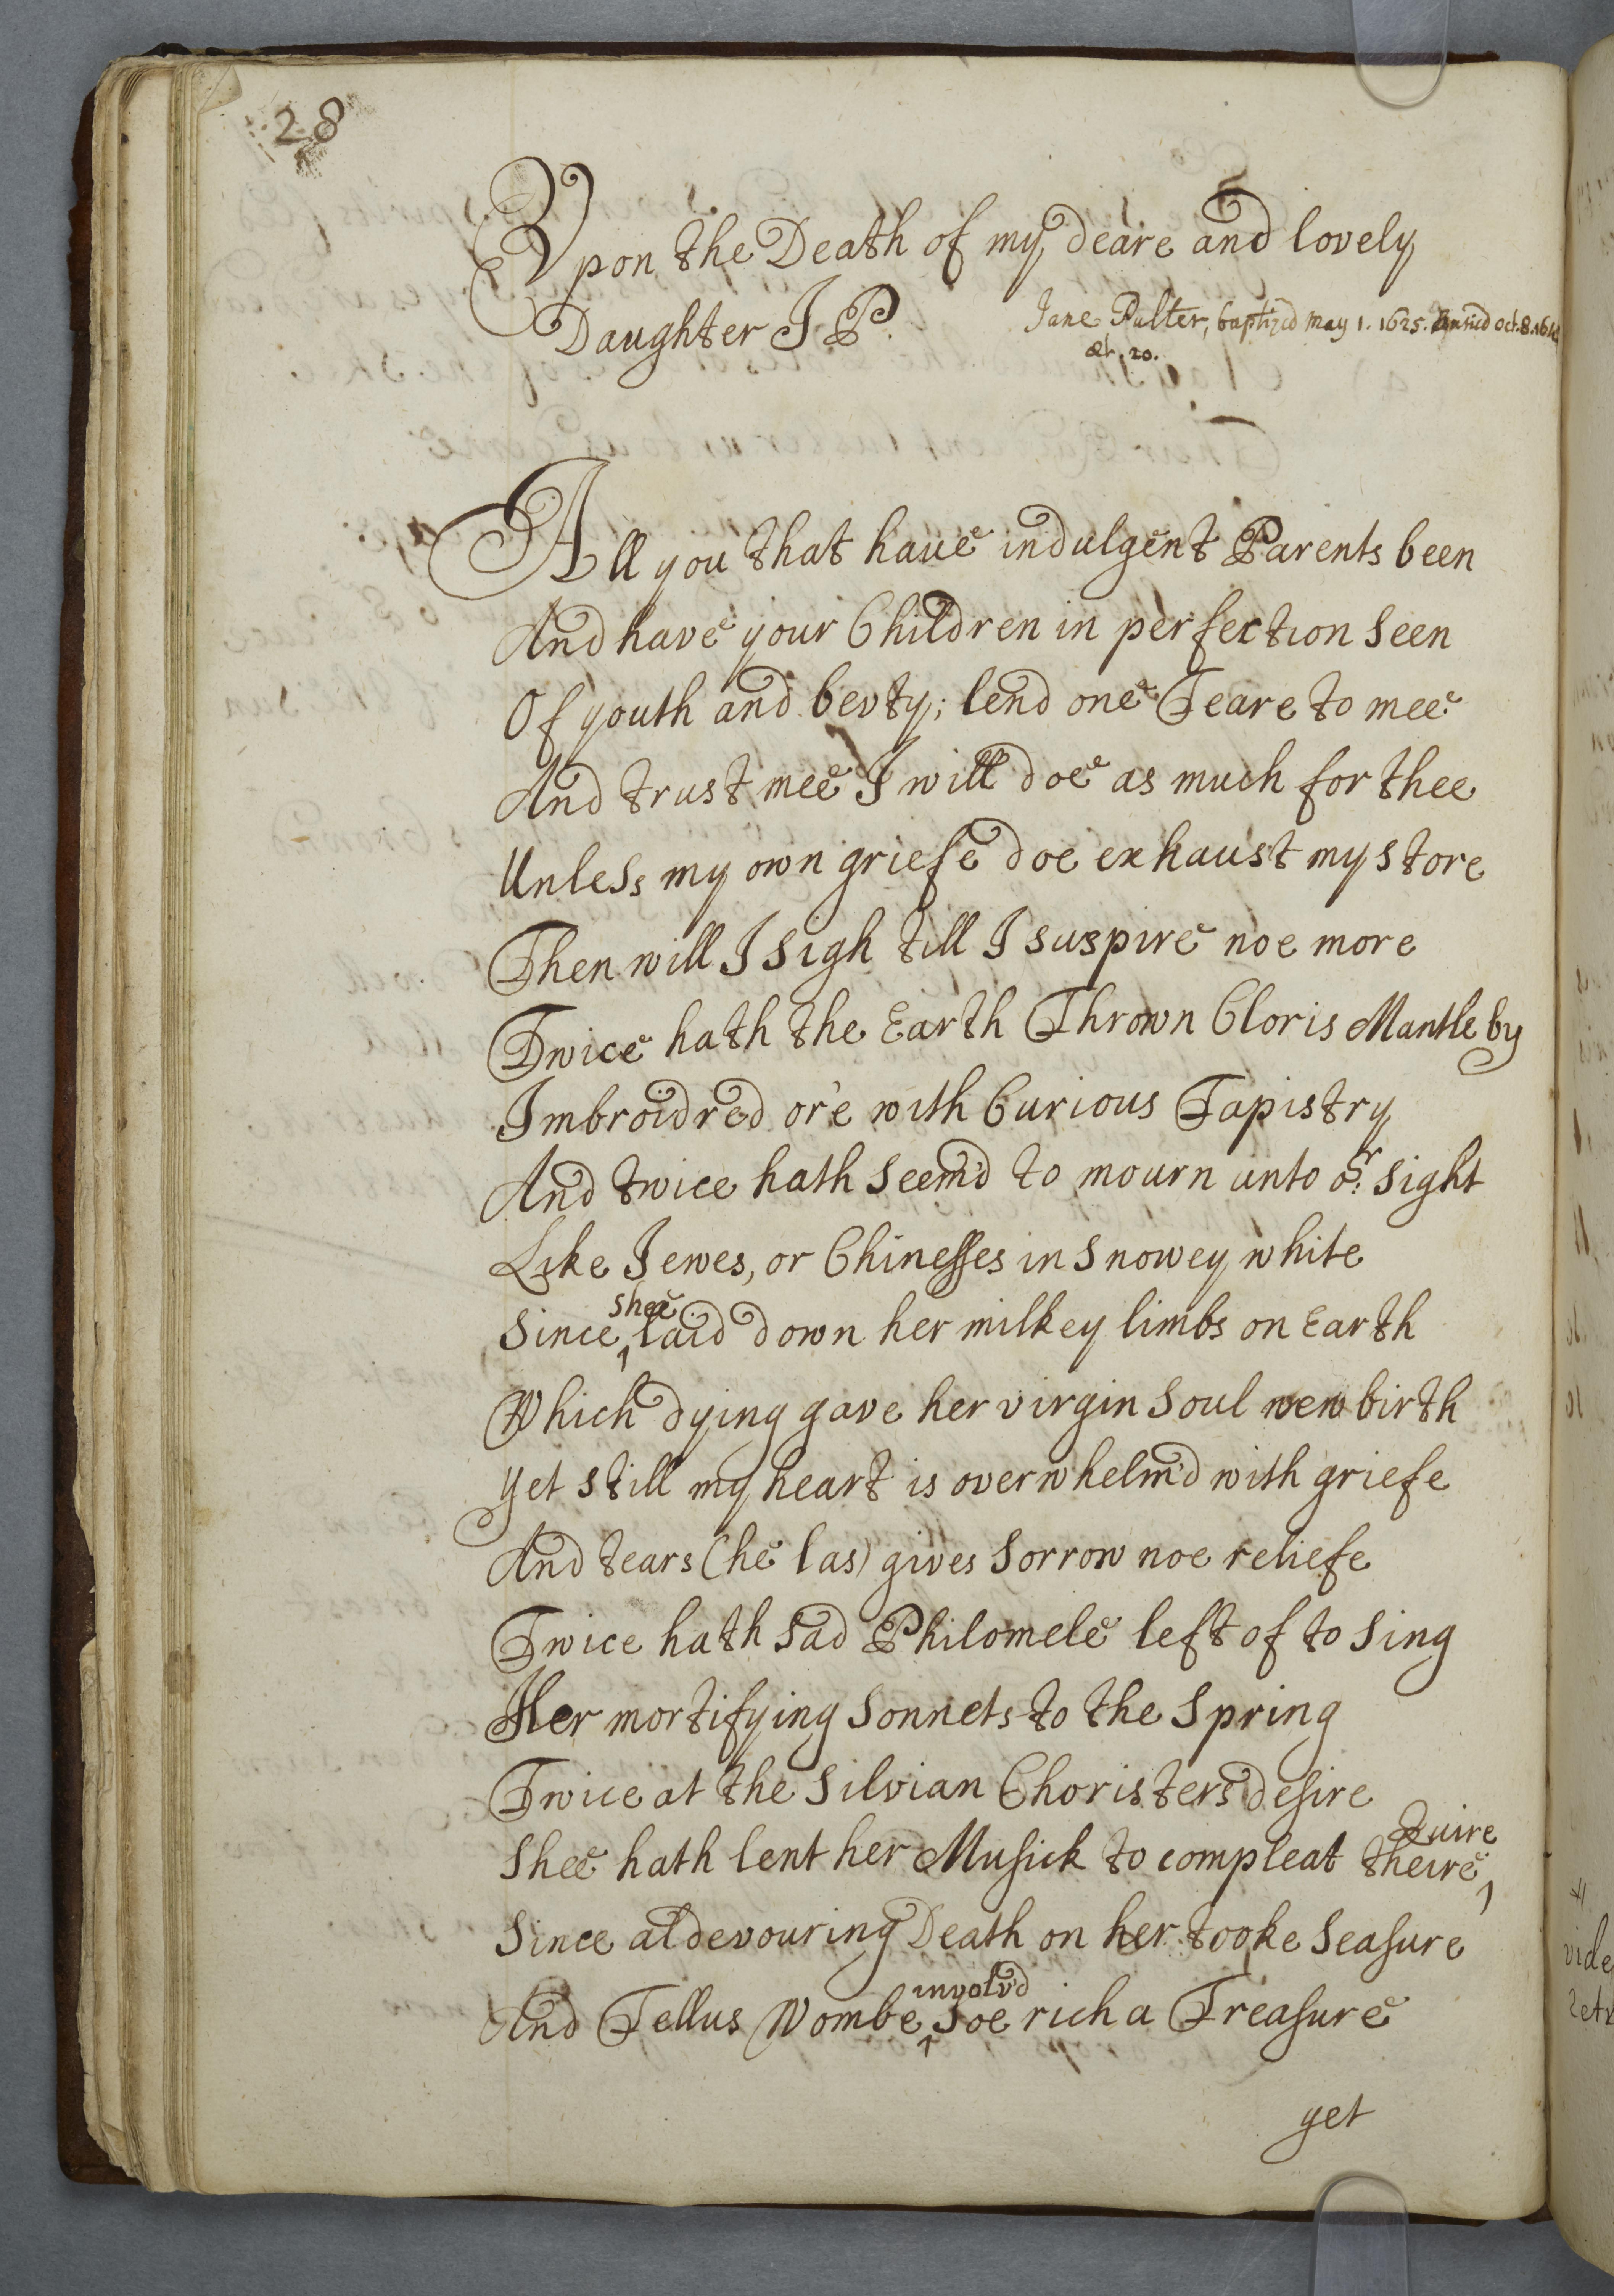 28
Upon the Death of my deare and lovely
Daughter J P.
Jane Pulter, baptized May 1. 1625. Buried Oct. 8. 1645
æt. 20.
All you that haue indulgent Parents been
And have your Children in perfection seen
Of youth and bevty; lend one Teare to mee
And trust mee I will doe as much for thee
Unless my own griefe doe exhaust my store
Then will I sigh till I suspire noe more
Twice hath the Earth Thrown Cloris Mantle by
Imbroidred or'e with Curious Tapistry
And twice hath seem'd to mourn unto or: sight
Like Jewes, or Chinesses in snowey white
Since shee laid down her milkey limbs on Earth
Which dying gave her virgin soul new birth
yet still my heart is overwhelm'd with griefe
And tears (he las) gives sorrow noe reliefe
Twice hath sad Philomele left of to sing
Her mortifying sonnets to the spring
Twice at the Silvian Choristers desire
Shee hath lent her Musick to compleat theire Quire
Since al devouring Death on her tooke seasure
And Tellus Wombe involv'd soe rich a Treasure
yet
vide